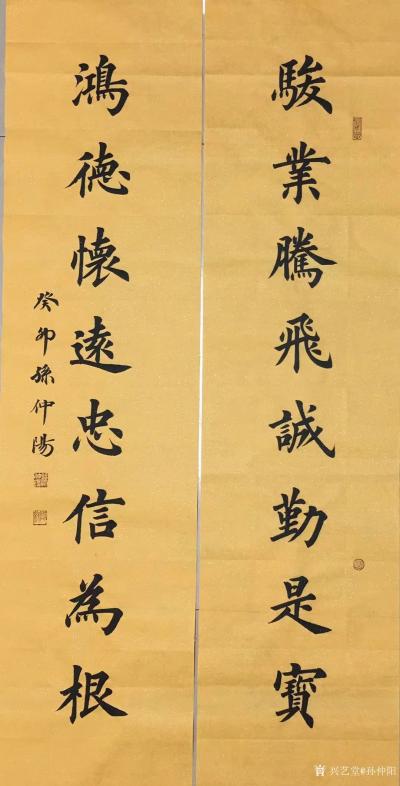 駿業騰飛誠勤是寶
鴻德懷遠忠信為根
癸卯孫仲陽
兴艺堂@孙仲阳